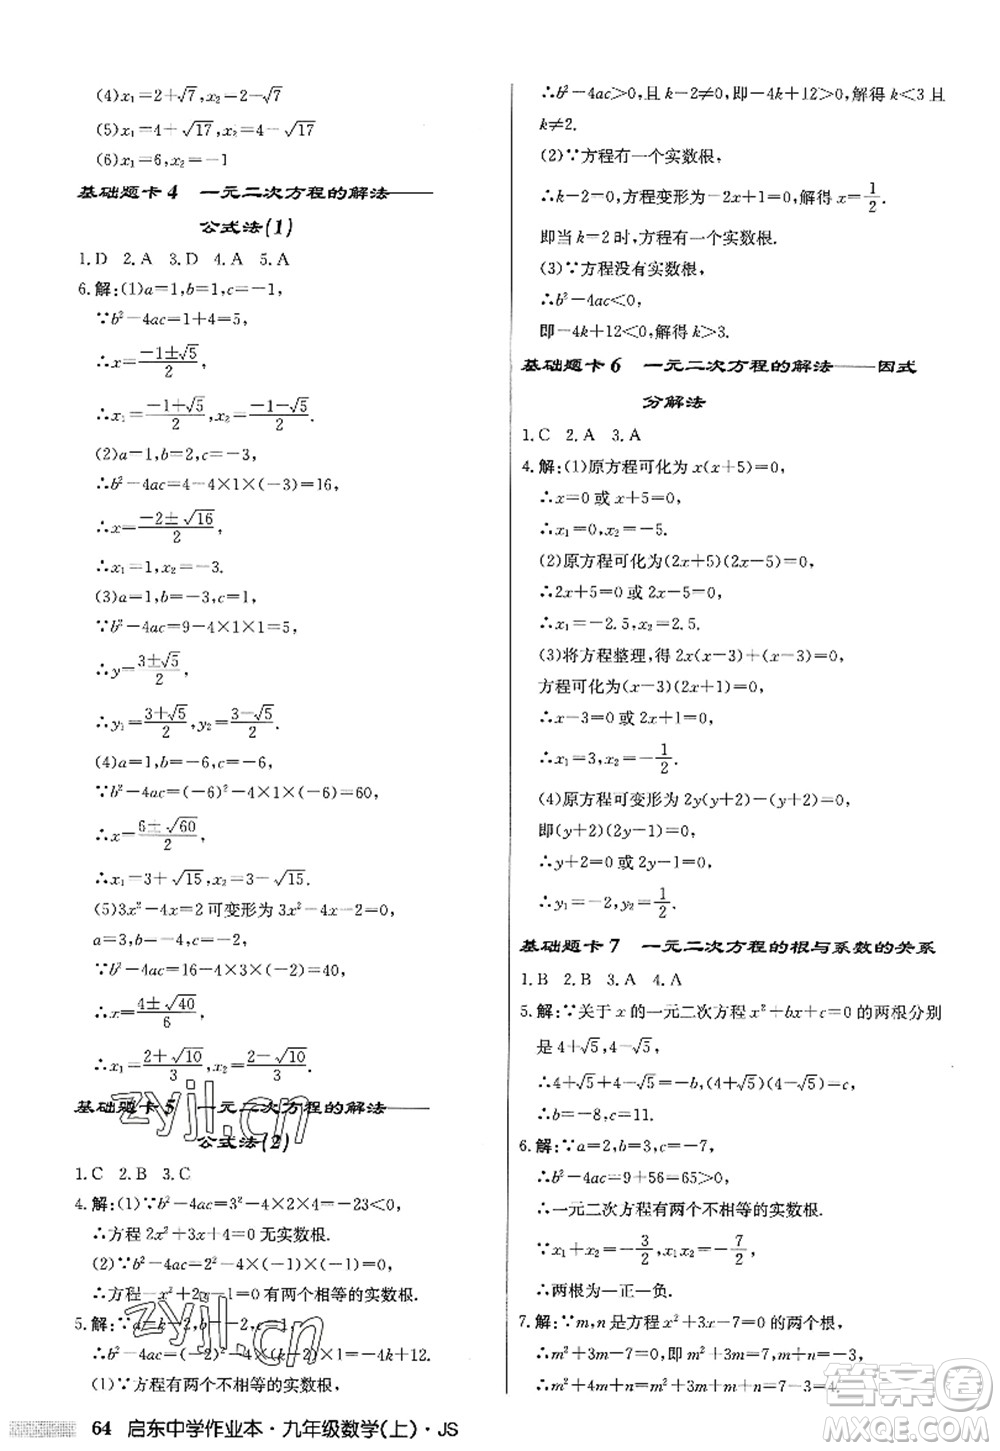 (4)x₁=2+√7,x₂=2-√7
(5)x₁=4+√17,x₂=4-√17
(6)x₁=6,x₂=-1
基础题卡4 一元二次方程的解法——
公式法(1)
1.D 2.A 3.D 4.A 5.A
6.解:(1)a=1,b=1,c=-1,
∵b²-4ac=1+4=5,
∴x=(-1±√5)/2,
∴x₁=(-1+√5)/2,x₂=(-1-√5)/2.
(2)a=1,b=2,c=-3,
∵b²-4ac=4-4×1×(-3)=16,
∴x=(-2±√16)/2,
∴x₁=1,x₂=-3.
(3)a=1,b=-3,c=1,
∵b²-4ac=9-4×1×1=5,
∴y=(3±√5)/2,
∴y₁=(3+√5)/2,y₂=(3-√5)/2.
(4)a=1,b=-6,c=-6,
∵b²-4ac=(-6)²-4×1×(-6)=60,
∴x=(6±√60)/2,
∴x₁=3+√15,x₂=3-√15.
(5)3x²-4x=2可变形为3x²-4x-2=0,
a=3,b=-4,c=-2,
∵b²-4ac=16-4×3×(-2)=40,
∴x=(4±√40)/6,
∴x₁=(2+√10)/3,x₂=(2-√10)/3.
基础题卡5 一元二次方程的解法——
公式法(2)
1.C 2.B 3.C
4.解:(1)∵b²-4ac=3²-4×2×4=-23<0,
∴方程2x²+3x+4=0无实数根.
(2)∵b²-4ac=2²-4×(-1)×(-1)=0,
∴方程-x²+2x-1=0有两个相等的实数根.
5.解:∵a=k-2,b=-2,c=1,
∴b²-4ac=(-2)²-4(k-2)×1=-4k+12.
(1)∵方程有两个不相等的实数根,
∴b²-4ac>0,且k-2≠0,即-4k+12>0,解得k<3且
k≠2.
(2)∵方程有一个实数根,
∴k-2=0,方程变形为-2x+1=0,解得x=1/2.
即当k=2时,方程有一个实数根.
(3)∵方程没有实数根,
∴b²-4ac<0,
即-4k+12<0,解得k>3.
基础题卡6 一元二次方程的解法——因式
分解法
1.C 2.A 3.A
4.解:(1)原方程可化为x(x+5)=0,
∴x=0或x+5=0,
∴x₁=0,x₂=-5.
(2)原方程可化为(2x+5)(2x-5)=0,
∴2x+5=0或2x-5=0,
∴x₁=-2.5,x₂=2.5.
(3)将方程整理,得2x(x-3)+(x-3)=0,
方程可化为(x-3)(2x+1)=0,
∴x-3=0或2x+1=0,
∴x₁=3,x₂=-1/2.
(4)原方程可变形为2y(y+2)-(y+2)=0,
即(y+2)(2y-1)=0,
∴y+2=0或2y-1=0,
∴y₁=-2,y₂=1/2.
基础题卡7 一元二次方程的根与系数的关系
1.B 2.B 3.A 4.A
5.解:∵关于x的一元二次方程x²+bx+c=0的两根分别
是4+√5,4-√5,
∴4+√5+4-√5=-b,(4+√5)(4-√5)=c,
∴b=-8,c=11.
6.解:∵a=2,b=3,c=-7,
∴b²-4ac=9+56=65>0,
∴一元二次方程有两个不相等的实数根.
∵x₁+x₂=-3/2<0,x₁x₂=-7/2,
∴两根为一正一负.
7.解:∵m,n是方程x²+3x-7=0的两个根,
∴m²+3m-7=0,即m²+3m=7,m+n=-3,
∴m²+4m+n=m²+3m+m+n=7-3=4.
64 启东中学作业本·九年级数学(上)·JS
zyjl.cn
zyjl.cn
答案圈
MXQE.COM